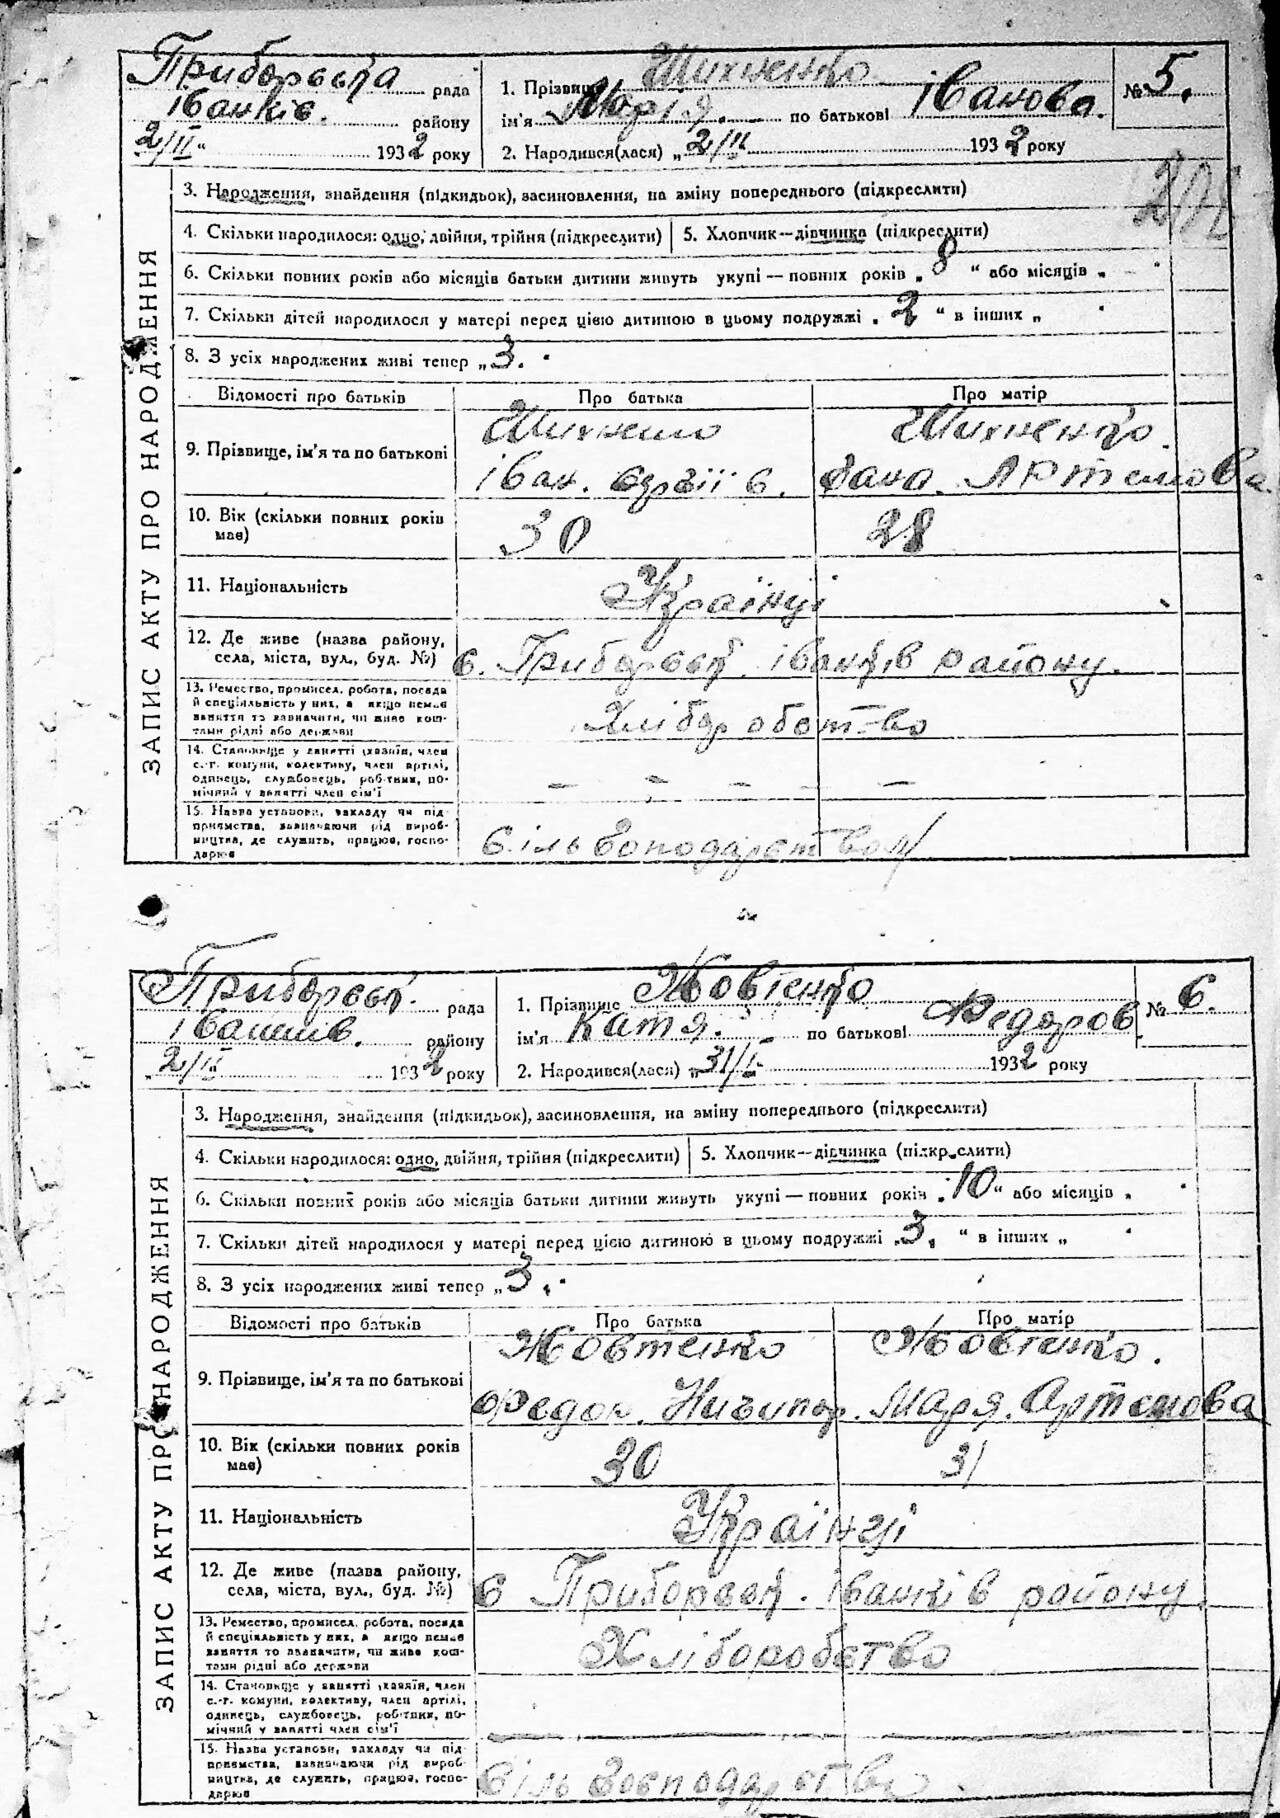 Приборська рада
іванків. району
2/II 1932 року
1. Прізвище Шихненко
ім'я Марія. по батькові іванова.
2. Народився(лася) „2/II 1932 року
№ 5.
ЗАПИС АКТУ ПРО НАРОДЖЕННЯ
3. Народження, знайдення (підкидьок), засиновлення, на зміну попереднього (підкреслити)
4. Скільки народилося: одно, двійня, трійня (підкреслити) 5. Хлопчик—дівчинка (підкреслити)
6. Скільки повних років або місяців батьки дитини живуть укупі — повних років „8“ або місяців „
7. Скільки дітей народилося у матері перед цією дитиною в цьому подружжі „2“ в інших „
8. З усіх народжених живі тепер „3.
Відомості про батьків Про батька Про матір
9. Прізвище, ім'я та по батькові
Шихненко Шихненко.
іван. Артемова
10. Вік (скільки повних років має) 30 28
11. Національність Українці
12. Де живе (назва району, села, міста, вул., буд. №) с. Приборськ іванків району.
13. Ремество, промисел, робота, посада
й спеціяльність у них, а якщо немає
заняття то зазначити, чи живе кош-
тами рідні або держави
Хліборобство
14. Становище у занятті (хазяїн, член
с.-г. комуни, колективу, член артілі,
одинець, службовець, робітник, по-
мічний у занятті член сім'ї
15. Назва установи, закладу чи під-
приємства, зазначаючи рід вироб-
ництва, де служить, працює, госпо-
дарює
Приборськ. рада
району
2/II 1932 року
1. Прізвище Жовтенко
ім'я Катя. по батькові Федоров
2. Народився(лася) „31/I 1932 року
№ 6.
ЗАПИС АКТУ ПРО НАРОДЖЕННЯ
3. Народження, знайдення (підкидьок), засиновлення, на зміну попереднього (підкреслити)
4. Скільки народилося: одно, двійня, трійня (підкреслити) 5. Хлопчик—дівчинка (підкреслити)
6. Скільки повних років або місяців батьки дитини живуть укупі — повних років „10“ або місяців „
7. Скільки дітей народилося у матері перед цією дитиною в цьому подружжі „3.“ в інших „
8. З усіх народжених живі тепер „3.
Відомості про батьків Про батька Про матір
9. Прізвище, ім'я та по батькові
Жовтенко Жовтенко.
Федор. Ничипор. Маря. Артемова
10. Вік (скільки повних років має) 30 31
11. Національність Українці
12. Де живе (назва району, села, міста, вул., буд. №) с Приборськ. іванків району.
13. Ремество, промисел, робота, посада
й спеціяльність у них, а якщо немає
заняття то зазначити, чи живе кош-
тами рідні або держави
Хліборобство
14. Становище у занятті (хазяїн, член
с.-г. комуни, колективу, член артілі,
одинець, службовець, робітник, по-
мічний у занятті член сім'ї
15. Назва установи, закладу чи під-
приємства, зазначаючи рід вироб-
ництва, де служить, працює, госпо-
дарює